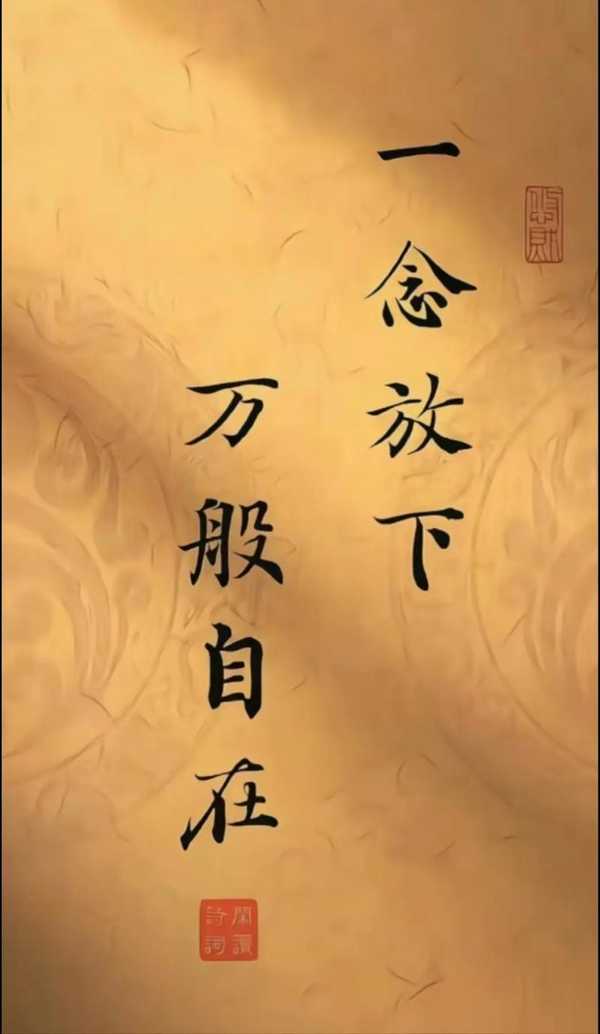 一念放下
万般自在
閑讀
詩詞